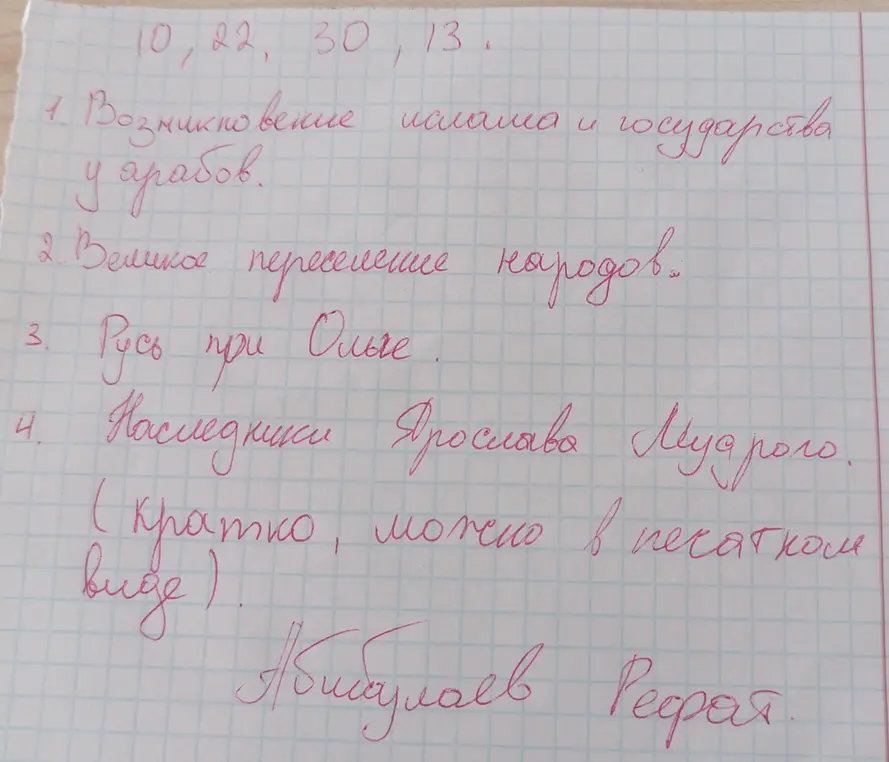 10, 22, 30, 13.
1. Возникновение ислама и государства
у арабов.
2. Великое переселение народов.
3. Русь при Ольге.
4. Наследники Ярослава Мудрого.
(кратко, можно в печатном
виде).
Абибулаев Рефат.